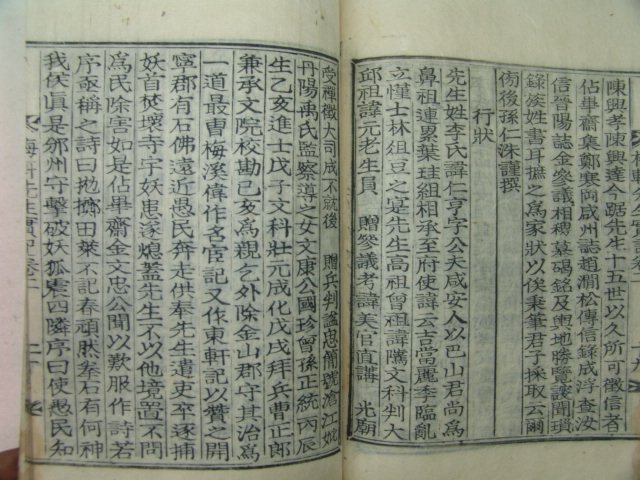 陳興孝存誠齋實記卷二
佔畢齋集鄭寒岡咸州志趙澗松傳信錄咸浮查汝
信晉陽誌金參議相稷墓碣銘及輿地勝覽諼聞瑣
錄族姓書耳撫之爲家狀以俟秉筆君子採取云爾
侑後孫仁洙謹撰
行狀
先生姓李氏諱仁亨字公夫咸安人以巴山君尚爲
鼻祖連累葉珪組相承至府使諱云吉當麗季臨亂
立慬士林俎豆之宴先生高祖曾祖諱隲文科判大
邱祖諱元老生員 贈參議考諱美官直講 光廟
受禪徵大司成不就後 贈兵判謚忠僖號滄江妣
丹陽禹氏監察導之女文康公國珍曾孫正統丙辰
生乙亥進士戊子文科壯元成化戊戌拜兵曹正郎
兼承文院校勘己亥爲親乞外除金山郡守其治爲
一道最曺梅溪偉作名宦記又作東軒記以贊之開
寧郡有石佛遠近愚民奔走供奉先生遣吏卒逐捕
妖首焚壞寺宇妖患遂熄蓋先生不以他境置不問
爲民除害如是佔畢齋金文忠公聞以歎服作詩若
序亟稱之詩曰抛擲田萊不記春頑然拳石有何神
我侯眞是邠州守擊破妖狐震四隣序曰使愚民知
梅軒先生實記卷二